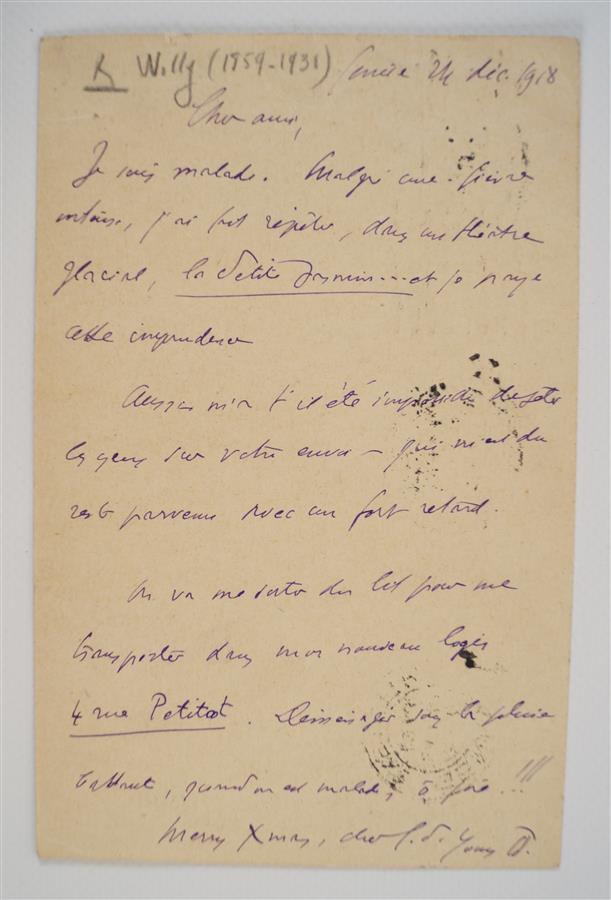 R Willy (1859-1931) Genève 24 déc. 1918
Cher ami,
Je suis malade. Malgré une fièvre
intense, j'ai fait répéter, dans un théâtre
glacial, la Petite Jasmin... et je paye
cette imprudence
Aussi m'a t'il été impossible de jeter
les yeux sur votre envoi – qui m'est du
reste parvenu avec un fort retard.
On va me sortir du lit pour me
transporter dans mon nouveau logis
4 rue Petitot. Déménager sous la pluie
battante, quand on est malade, ô joie!!!
Merry Xmas, cher